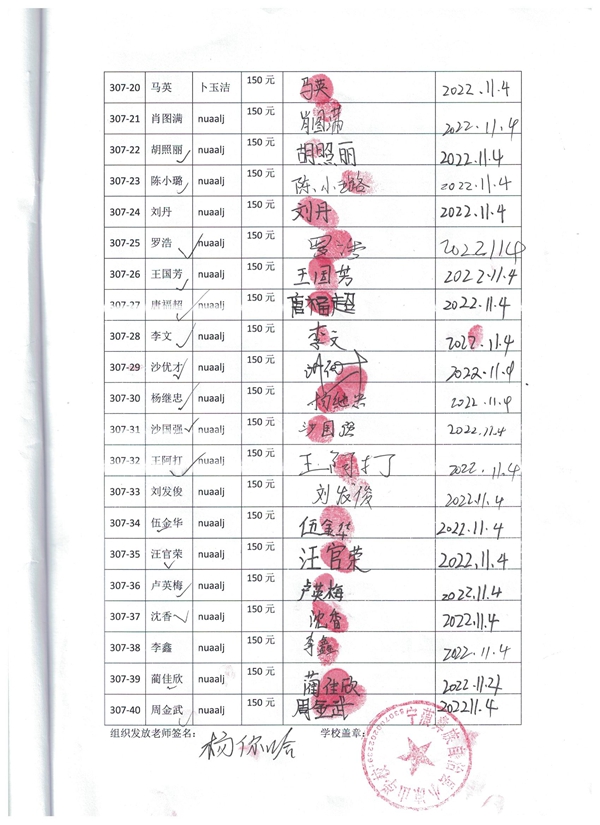 307-20 马英 卜玉洁 150 元 马英 2022.11.4
307-21 肖图满 nuaalj 150 元 肖图满 2022.11.4
307-22 胡照丽 nuaalj 150 元 胡照丽 2022.11.4
307-23 陈小璐 nuaalj 150 元 陈小璐 2022.11.4
307-24 刘丹 nuaalj 150 元 刘丹 2022.11.4
307-25 罗浩 nuaalj 150 元 罗浩 2022.11.4
307-26 王国芳 nuaalj 150 元 王国芳 2022.11.4
307-27 唐福超 nuaalj 150 元 唐福超 2022.11.4
307-28 李文 nuaalj 150 元 李文 2022.11.4
307-29 沙优才 nuaalj 150 元 2022.11.4
307-30 杨继忠 nuaalj 150 元 杨继忠 2022.11.4
307-31 沙国强 nuaalj 150 元 沙国强 2022.11.4
307-32 王阿打 nuaalj 150 元 王阿打 2022.11.4
307-33 刘发俊 nuaalj 150 元 刘发俊 2022.11.4
307-34 伍金华 nuaalj 150 元 伍金华 2022.11.4
307-35 汪官荣 nuaalj 150 元 汪官荣 2022.11.4
307-36 卢英梅 nuaalj 150 元 卢英梅 2022.11.4
307-37 沈香 nuaalj 150 元 沈香 2022.11.4
307-38 李鑫 nuaalj 150 元 李鑫 2022.11.4
307-39 蔺佳欣 nuaalj 150 元 蔺佳欣 2022.11.4
307-40 周金武 nuaalj 150 元 周金武 2022.11.4
组织发放老师签名： 学校盖章：
宁蒗彝族自治县小凉山学校